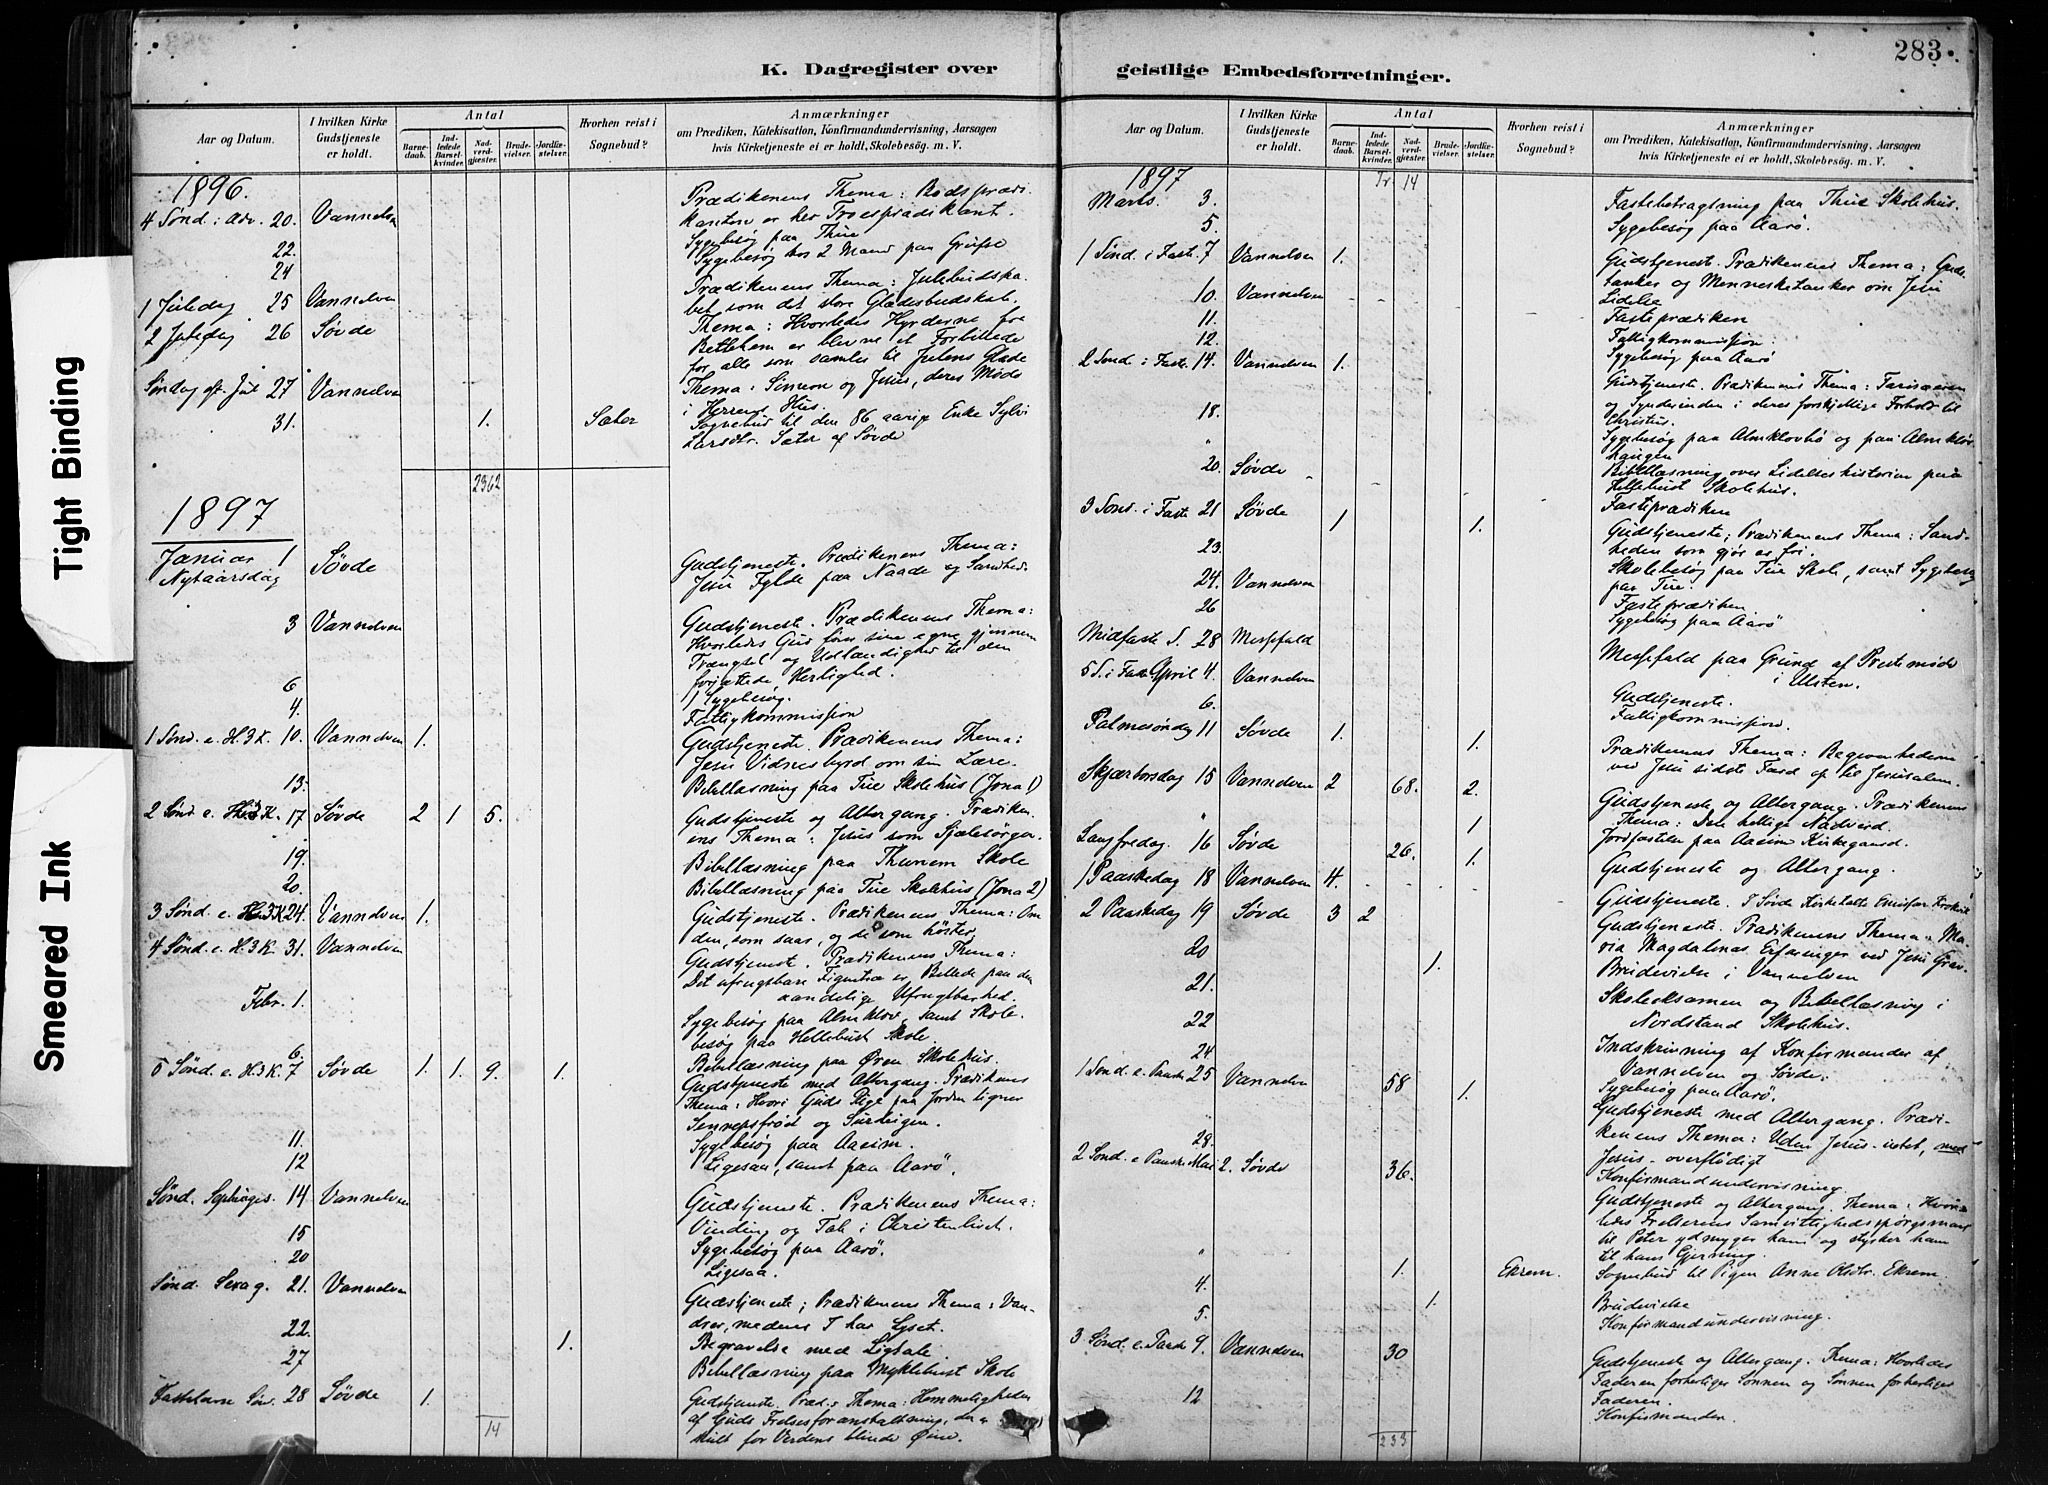 283.
K. Dagregister over
geistlige Embedsforretninger.
Tight Binding
Smeared Ink
Aar og Datum.
I hvilken Kirke
Gudstjeneste
er holdt.
Antal
Barne-
daab.
Ind-
ledede
Barsel-
kvinder.
Nad-
verd-
gjæster.
Brude-
vielser.
Jordfæ-
stelser.
Hvorhen reist i
Sognebud?
Anmærkninger
om Prædiken, Katekisation, Konfirmandundervisning, Aarsagen
hvis Kirketjeneste ei er holdt, Skolebesög. m. V.
1896.
4 Sønd. i Adv. 20. Vannelven Prædikenens Thema: Bodsprædi-
kanten er her Troesprædikant.
22. Sygebesøg paa Thue
24 Sygebesøg hos 2 Mand paa
1 Juledag 25 Vannelven Prædikenens Thema: Julebudska-
bet som det store Glædesbudskab.
2 Juledag 26 Søvde Thema: Hvorledes Hyrderne fra
Betlehem er blevne et Forbillede
for alle som samles til Julens Glæde
Søndag eft. Jul 27 Vannelven Thema: Simeon og Jesus, deres Møde
i Herrens Hus.
31. 1. Sæter Sognebud til den 86 aarige Enke Sylvi
Larsdtr. Sæter af Søvde
2362
1897
Januar 1
Nytaarsdag Søvde Gudstjeneste. Prædikenens Thema:
Jesu Fylde paa Naade og Sandhed.
3 Vannelven Gudstjeneste. Prædikenens Thema:
Hvorledes Gud fører sine egne gjennem
Trængsel og Udlændighed til den
forjættede Herlighed.
6 1 Sygebesøg.
4. Fattigkommission
1 Sønd. e. H.3K. 10. Vannelven 1. Gudstjeneste. Prædikenens Thema:
Jesu Vidnesbyrd om sin Lære.
13. Bibellæsning paa Tue Skolehus (Jona 1)
2 Sønd. e. H.3K. 17 Søvde 2 1 5. Gudstjeneste og Altergang. Prædiken-
ens Thema: Jesus som Sjælesørger.
19. Bibellæsning paa Thunem Skole
20. Bibellæsning paa Tue Skolehus (Jona 2)
3 Sønd. e. H.3K. 24. Vannelven 1. Gudstjeneste. Prædikenens Thema: Om
den, som saar, og de som høster.
4 Sønd. e. H.3K. 31. Vannelven Gudstjeneste. Prædikenens Thema:
Det ufrugtbare Figentræ er Billede paa den
aandelige Ufrugtbarhed.
Febr. 1. Sygebesøg paa Almklov, samt Skole-
besøg paa Hellebust Skole.
6. Bibellæsning paa Øren Skolehus.
5 Sønd. e. H.3K. 7 Søvde 1. 1. 9. 1. Gudstjeneste med Altergang. Prædikens
Thema: Hvori Guds Rige paa Jorden ligner
Sennepsfrøet og Surdeigen.
11. Sygebesøg paa Aaeim.
12 Ligesaa, samt paa Aarø.
Sønd. Septuages. 14 Vannelven Gudstjeneste. Prædikenens Thema:
Vinding og Tab i Christenlivet.
15 Sygebesøg paa Aarø.
20 Ligesaa.
Sønd. Sexag. 21. Vannelven Gudstjeneste; Prædikenens Thema: Van-
drer, medens I har Lyset.
22. 1. Begravelse med Ligtale.
27 Bibellæsning paa Myklebust Skole
Fastelavn Søn. 28 Søvde 1. Gudstjeneste. Præd.s Thema: Hemmeligheden
af Guds Frelsesforanstaltning,
skult for Verdens blinde Øine.
14
Aar og Datum.
I hvilken Kirke
Gudstjeneste
er holdt.
Antal
Barne-
daab.
Ind-
ledede
Barsel-
kvinder.
Nad-
verd-
gjæster.
Brude-
vielser.
Jordfæ-
stelser.
Hvorhen reist i
Sognebud?
Anmærkninger
om Prædiken, Katekisation, Konfirmandundervisning, Aarsagen
hvis Kirketjeneste ei er holdt, Skolebesög. m. V.
1897 Tr. 14
Marts. 3. Fastebetragtning paa Thue Skolehus.
5. Sygebesøg paa Aarø.
1 Sønd. i Faste. 7 Vannelven 1. Gudstjeneste. Prædikenens Thema: Guds
tanker og Mennesketanker om Jesu
Lidelse
10. Vannelven Fasteprædiken
11. Fattigkommission.
12. Sygebesøg paa Aarø
2 Sønd. i Faste. 14. Vannelven 1. Gudstjeneste. Prædikenens Thema: Farisæeren
og Synderinden i deres forskjellige Forhold til
Christus.
18. Sygebesøg paa Almklovbø og paa Almklov-
haugen
" Bibellæsning over Lidelseshistorien paa
Hellebust Skolehus.
20. Søvde Fasteprædiken
3 Sønd. i Faste 21 Søvde 1 1. Gudstjeneste; Prædikenens Thema: Sand-
heden som gjør os fri.
23. Skolebesøg paa Tue Skole, samt Sygebesøg
paa Tue.
24. Vannelven Fasteprædiken.
26 Sygebesøg paa Aarø
Midfaste S. 28 Messefald Messefald paa Grund af Prestemøde
i Ulsten.
5 S. i Faste April 4. Vannelven Gudstjeneste.
6. Fattigkommission.
Palmesøndag 11 Søvde 1. 1. Prædikenens Thema: Begivenhederne
ved Jesu sidste Færd op til Jerusalem.
Skjærtorsdag 15 Vannelven 2 68. 2. Gudstjeneste og Altergang. Prædikenens
Thema: Den hellige Nadverd.
" 1 Jordfæstelse paa Aaeim Kirkegaard.
Langfredag. 16 Søvde 26. 1. Gudstjeneste og Altergang.
1 Paaskedag 18 Vannelven 4. Gudstjeneste. I Søvde Kirke talte
2 Paaskedag 19 Søvde 3 2 Gudstjeneste. Prædikenens Thema: Ma-
ria Magdalenas Erfaringer ved Jesu Grav.
20 1. Brudevielse i Vannelven
21. Skoleeksamen og Bibellæsning i
Nordstrand Skolehus.
22 Indskrivning af Konfirmander af
Vannelven og Søvde.
24 Sygebesøg paa Aarø.
1 Sønd. e. Paaske 25 Vannelven 58 1. Gudstjeneste med Altergang. Prædi-
kenens Thema: Uden Jesus - intet, med
Jesus - overflødigt
28. Konfirmandundervisning.
2 Sønd. e Paaske Mai 2. Søvde 36. Gudstjeneste og Altergang. Thema: Hvor-
ledes Frelserens Samvittighedsspørgsmaal
til Peter ydmyger ham og styrker ham
til hans Gjerning.
" 1. Ekrem. Sognebud til Pigen Anne Olsdtr. Ekrem.
4. 1. Brudevielse
5. Konfirmandundervisning.
3 Sønd. e. Paaske 9. Vannelven 30 Gudstjeneste og Altergang. Tema: Hvorledes
Faderen forherliger Sønnen og Sønnen forherliger
Faderen.
12 Konfirmander.
233